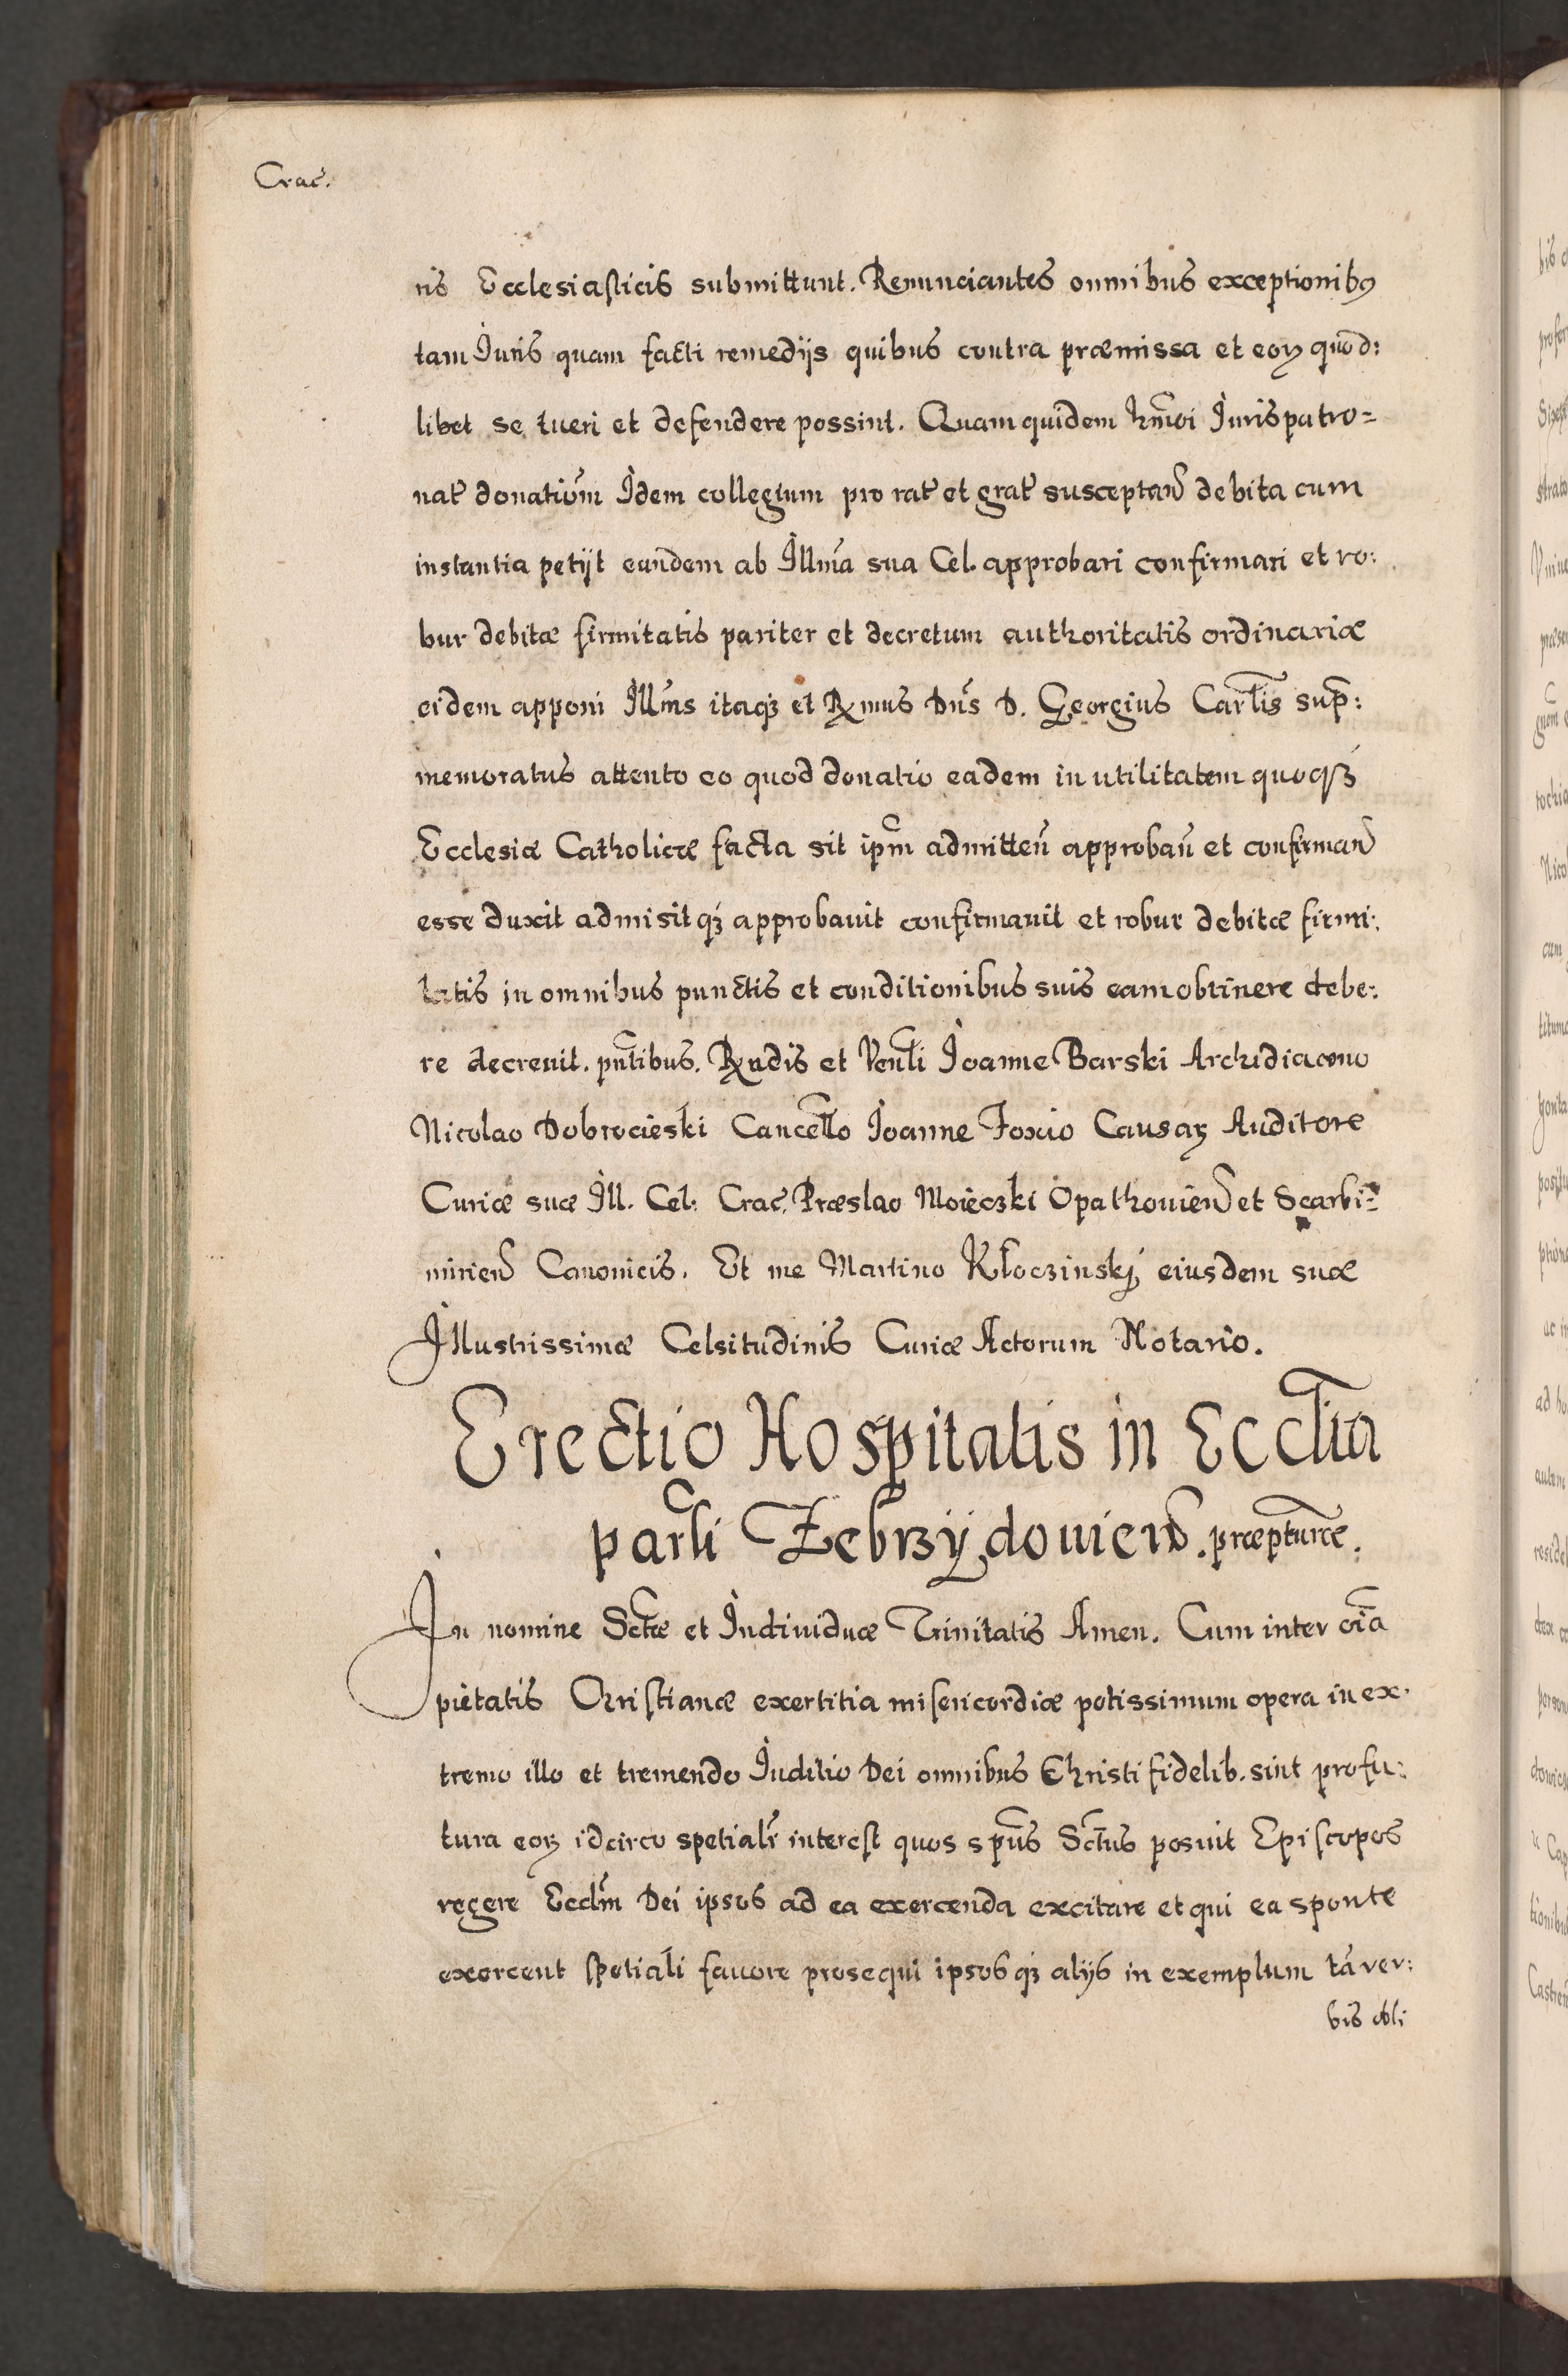 Crac̃.
ris Ecclesiasticis submittunt. Renunciantes omnibus exceptionibꝰ
tam Iuris quam facti remedijs quibus contra præmissa et eoꝝ quod:
libet se tueri et defendere possint. Quam quidem hm̃oi Iurispatro=
nat̃ donatiõm Idem collegium pro rat̃ et grat̃ susceptañ debita cum
instantia petijt eundem ab Illm̃a sua Cel. approbari confirmari et ro:
bur debitæ firmitatis pariter et decretum authoritatis ordinariæ
eidem apponi Illm̃s itaqꝫ et Rx̃mus Dñs D. Georgius Carlis̃ sup̃:
memoratus attento eo quod donatio eadem in utilitatem quoqꝫ
Ecclesiæ Catholicæ facta sit ip̃m admitteñ approbañ et confirmañ
esse duxit admisitqꝫ approbauit confirmauit et robur debitæ firmi:
tatis in omnibus punctis et conditionibus suis eam obtinere debe:
re decreuit. pñtibus. Rx̃ndis et Veñli Ioanne Barski Archidiacono
Nicolao Dobrocieski Cancel̃lo Ioanne Foxio Causaꝝ Auditore
Curiæ suæ Ill. Cel: Crac̃. Præslao Moieczki Opathouieñ et Scarbi=
mirieñ Canonicis. Et me Martino Kłoczinskj eiusdem suæ
Illustrissimæ Celsitudinis Curiæ Actorum Notario.
Erectio Hospitalis in Eccl̃ia
parl̃i Zebrzÿdouieñ. præpturæ̃.
In nomine Sctæ̃ et Indiuiduæ Trinitatis Amen. Cum inter oĩa
pietatis Christianæ exertitia misericordiæ potissimum opera in ex:
tremo illo et tremendo Iuditio Dei omnibus Christi fidelib. sint profu:
tura eoꝝ idcirco spetialr̃ interest quos spũs Sctũs posuit Episcopos
regere Eccl̃m Dei ipsos ad ea exercenda excitare et qui ea sponte
exercent spetiali fauore prosequi ipsosqꝫ alijs in exemplum tã ver:
bis obli